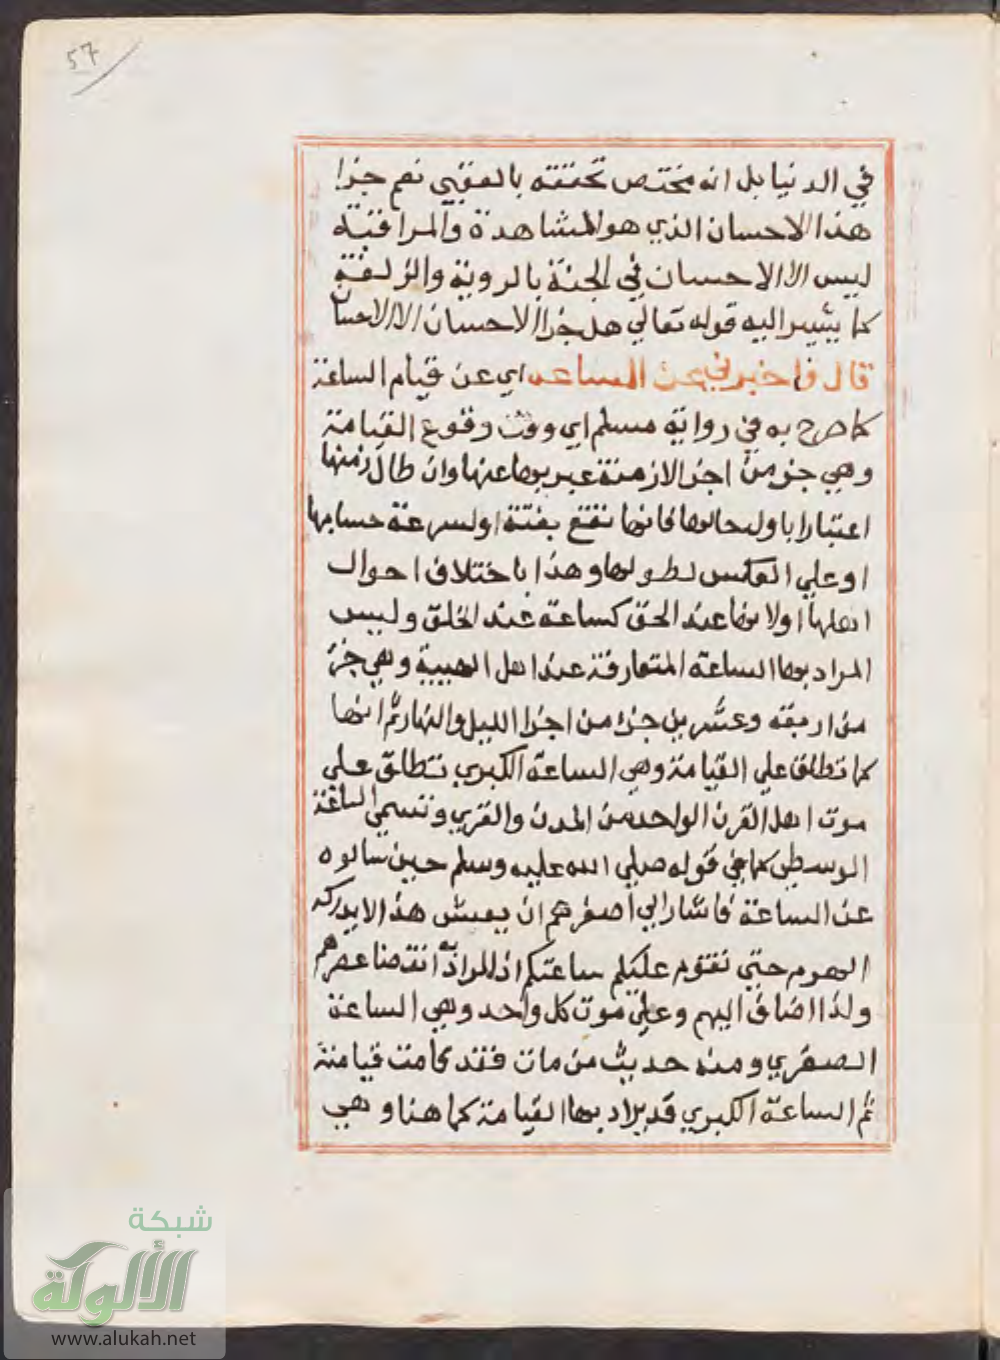 57
في الدنيا بل انه مختص تحققه بالعقبي نعم جزا
هذا الاحسان الذي هو المشاهدة والمراقبة
ليس الا الاحسان في الجنة بالروية والزلفة
كما يشير اليه قوله تعالي هل جزا الاحسان الا الاحسان
قال فاخبرني عن الساعه اي عن قيام الساعة
كما صرح به في رواية مسلم اي ووقت وقوع القيامة
وهي جزء من اجزا الازمنة عبر بها عنها وان طال زمنها
اعتبارا باول حالها فانها تقع بغتة او لسرعة حسابها
او علي العكس لطولها وهذا باختلاف احوال
اهلها او لانها عند الحق كساعة عند الخلق وليس
المراد بها الساعة المتعارفة عند اهل الهيية وهي جزء
من اربعة وعشرين جزء من اجزا الليل والنهار ثم انها
كما تطلق علي القيامة وهي الساعة الكبري تطلق علي
موت اهل القرن الواحد من المدن والقري وتسمي الساعة
الوسطي كما في قوله صلي الله عليه وسلم حين سالوه
عن الساعة فاشار الي اصغرهم ان يعش هذا لا يدركه
الهرم حتي تقوم عليكم ساعتكم اذ المراد به انقضا عصرهم
ولذا اضاف اليهم وعلي موت كل واحد وهي الساعة
الصغري ومنه حديث من مات فقد قامت قيامته
ثم الساعة الكبري قد يراد بها القيامة كما هنا وهي
شبكة
الألوكة
www.alukah.net